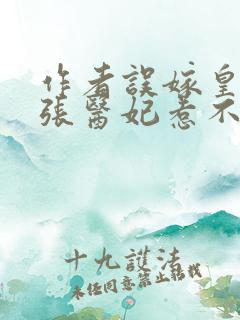 作者誤嫁皇
張醫妃惹不
十九護法
未经同意禁止转载